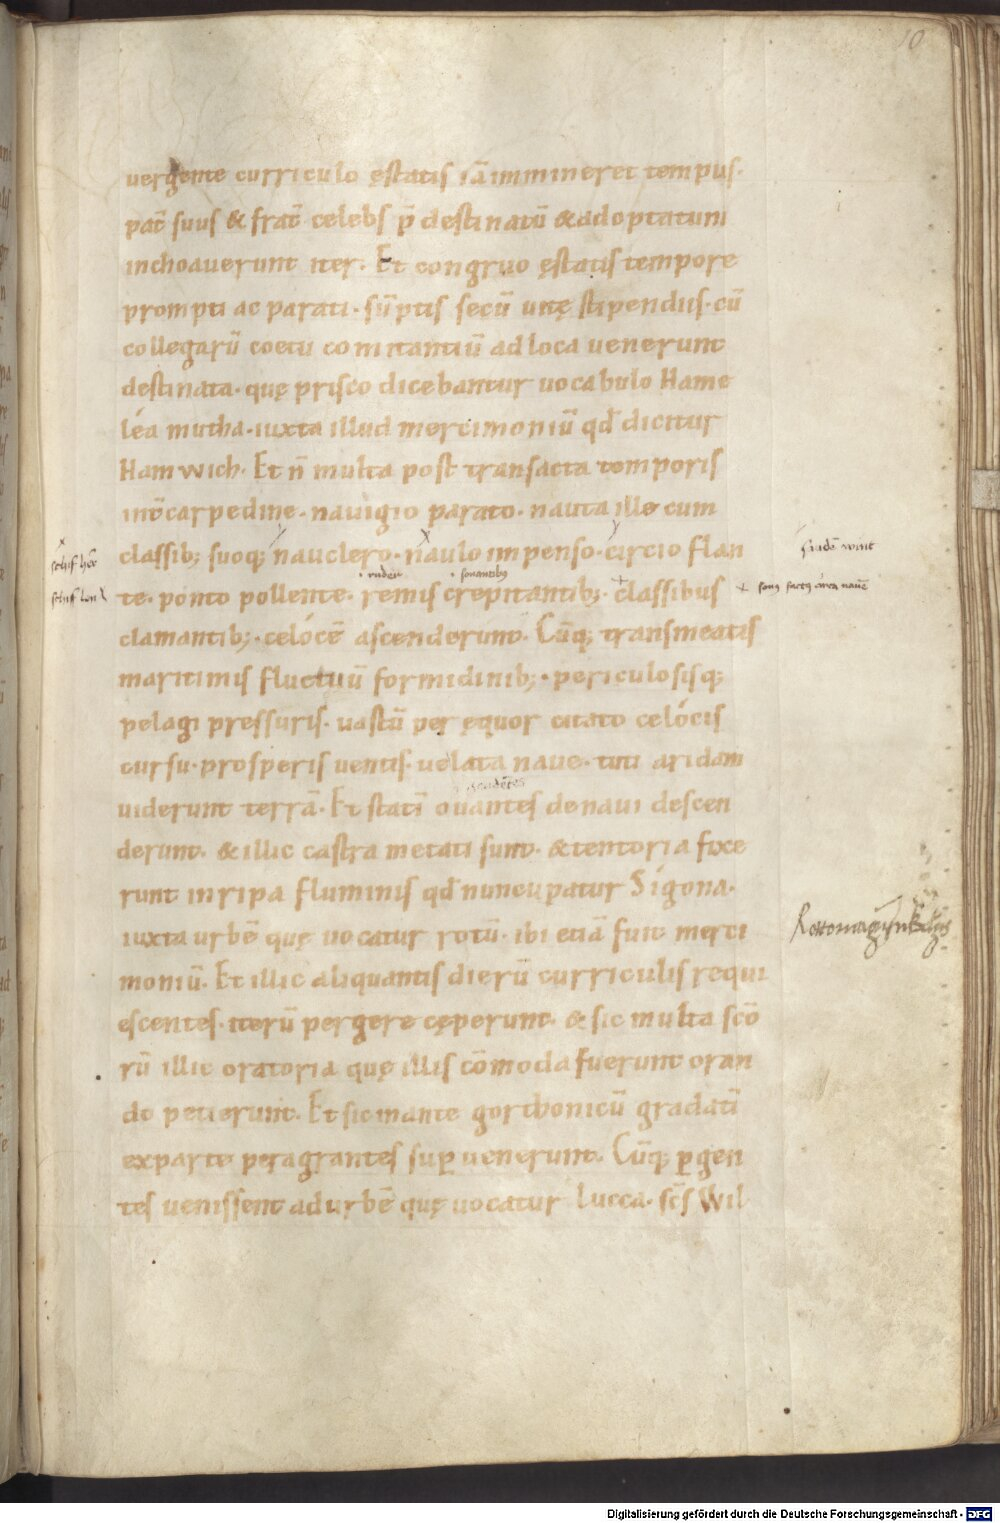 10
uergente curriculo ęstatis iā immineret tempus.
pat̄ suus & frat̄ celebs p̄ destinatū & adoptatum
inchoauerunt iter. Et congruo ęstatis tempore
prompti ac parati. sūptis secū uitę stipendiis. cū
collegarū coetu comitantiū ad loca uenerunt
destinata. quę prisco dicebantur uocabulo Hame
léa mutha. iuxta illud mercimoniū qd̄ dicitur
Ham wich. Et n̄ multa post transacta temporis
int̄carpedine. nauigio parato. nauta ille cum
classib; suoq; nauclero. naulo impenso. circio flan
schif her̄
sūdē wint
ruder
sonantibꝫ
te. ponto pollente. remis crepitantib;. classibus
schif lon
sonꝰ factꝰ circa nauē
clamantib;. celócē ascenderunt. Cūq; transmeatis
maritimis fluctuū formidinib;. periculosisq;
pelagi pressuris. uastū per ęquor citato celócis
cursu. prosperis uentis. uelata naue. tuti aridam
gaudētes
uiderunt terrā. Et statī ouantes de naui descen
derunt. & illic castra metati sunt. & tentoria fixe
runt in ripa fluminis qd̄ nuncupatur Sigona.
iuxta urbē quę uocatur rotū. ibi etiā fuit merci
moniū. Et illic aliquantis dierū curriculis requi
escentes. iterū pergere cęperunt. & sic multa scō
rū illic oratoria quę illis cōmoda fuerunt oran
do petierunt. Et sic inante gorthonicū gradatī
ex parte peragrantes suꝑ uenerunt. Cūq; ꝑgen
tes uenissent ad urbē quę uocatur Lucca. scs̄ Wil
Digitalisierung gefördert durch die Deutsche Forschungsgemeinschaft - DFG